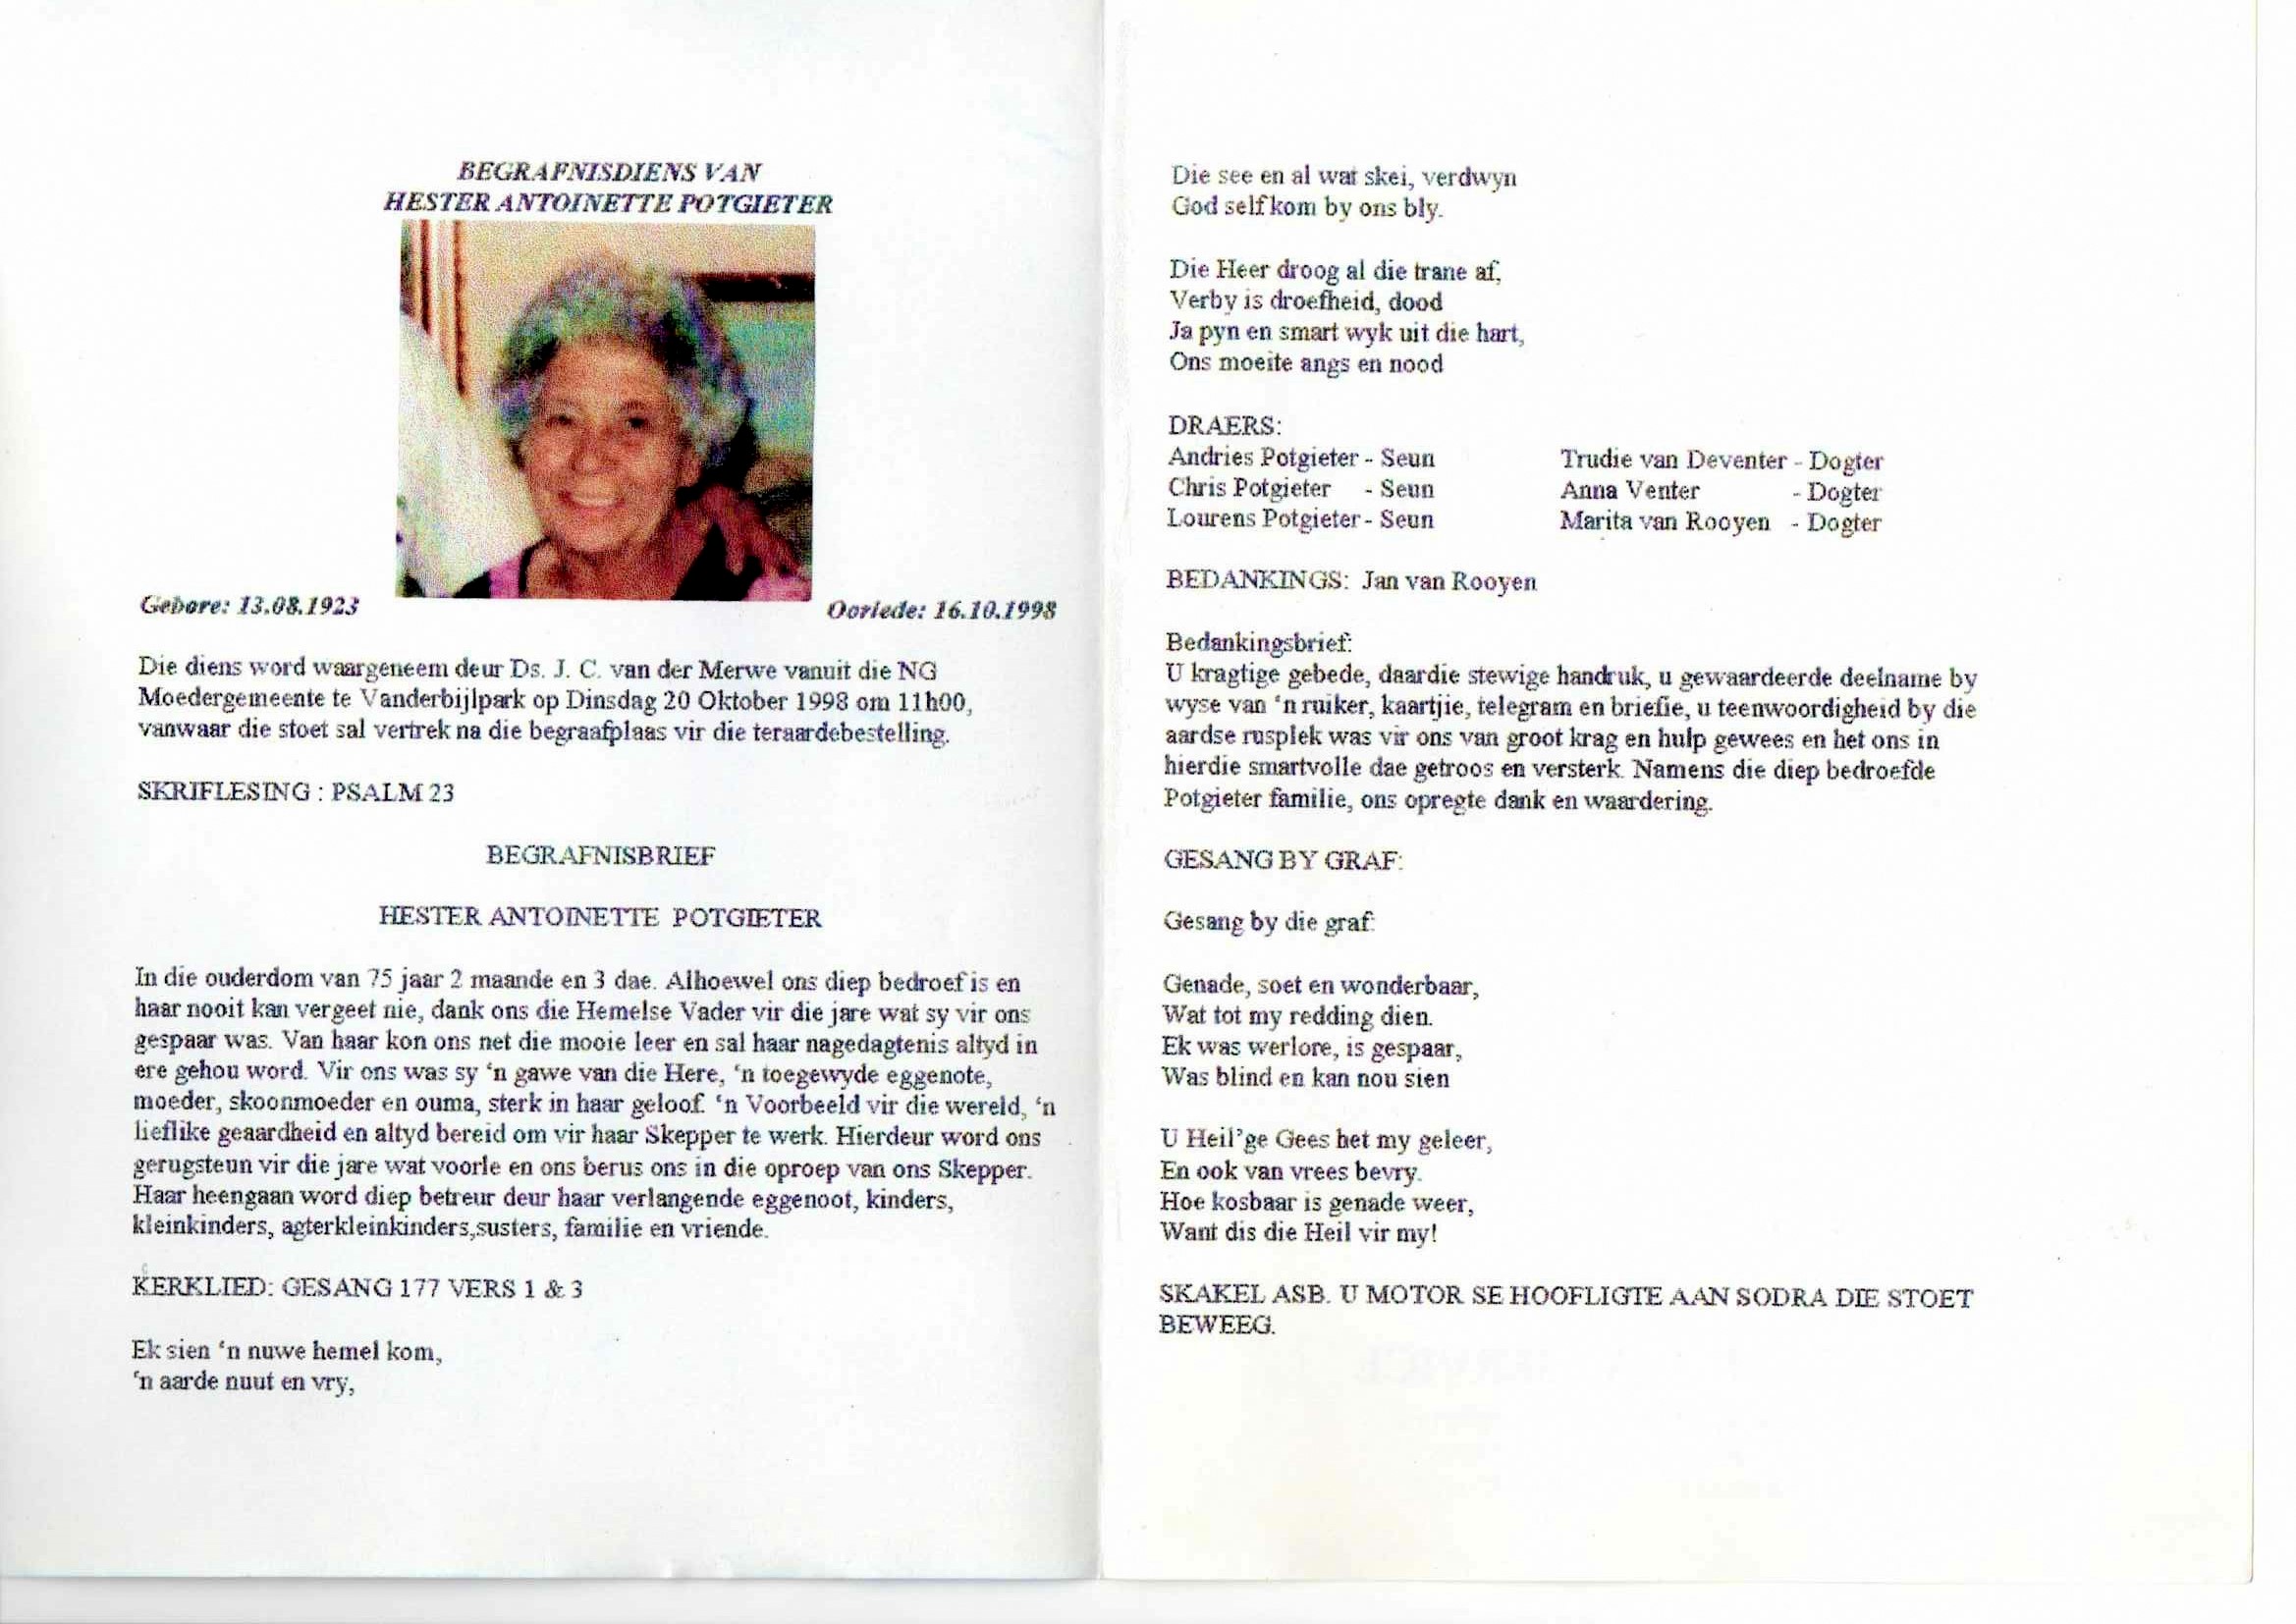 BEGRAFNISDIENS VAN
HESTER ANTOINETTE POTGIETER
Gebore: 13.08.1923
Oorlede: 16.10.1998
Die diens word waargeneem deur Ds. J. C. van der Merwe vanuit die NG
Moedergemeente te Vanderbijlpark op Dinsdag 20 Oktober 1998 om 11h00,
vanwaar die stoet sal vertrek na die begraafplaas vir die teraardebestelling.
SKRIFLESING : PSALM 23
BEGRAFNISBRIEF
HESTER ANTOINETTE POTGIETER
In die ouderdom van 75 jaar 2 maande en 3 dae. Alhoewel ons diep bedroef is en
haar nooit kan vergeet nie, dank ons die Hemelse Vader vir die jare wat sy vir ons
gespaar was. Van haar kon ons net die mooie leer en sal haar nagedagtenis altyd in
ere gehou word. Vir ons was sy ‘n gawe van die Here, ‘n toegewyde eggenote,
moeder, skoonmoeder en ouma, sterk in haar geloof. ‘n Voorbeeld vir die wereld, ‘n
lieflike geaardheid en altyd bereid om vir haar Skepper te werk. Hierdeur word ons
gerugsteun vir die jare wat voorle en ons berus ons in die oproep van ons Skepper.
Haar heengaan word diep betreur deur haar verlangende eggenoot, kinders,
kleinkinders, agterkleinkinders,susters, familie en vriende.
KERKLIED: GESANG 177 VERS 1 & 3
Ek sien ‘n nuwe hemel kom,
‘n aarde nuut en vry,
Die see en al wat skei, verdwyn
God self kom by ons bly.
Die Heer droog al die trane af,
Verby is droefheid, dood
Ja pyn en smart wyk uit die hart,
Ons moeite angs en nood
DRAERS:
Andries Potgieter - Seun Trudie van Deventer - Dogter
Chris Potgieter - Seun Anna Venter - Dogter
Lourens Potgieter - Seun Marita van Rooyen - Dogter
BEDANKINGS: Jan van Rooyen
Bedankingsbrief:
U kragtige gebede, daardie stewige handruk, u gewaardeerde deelname by
wyse van ‘n ruiker, kaartjie, telegram en briefie, u teenwoordigheid by die
aardse rusplek was vir ons van groot krag en hulp gewees en het ons in
hierdie smartvolle dae getroos en versterk. Namens die diep bedroefde
Potgieter familie, ons opregte dank en waardering.
GESANG BY GRAF:
Gesang by die graf:
Genade, soet en wonderbaar,
Wat tot my redding dien.
Ek was werlore, is gespaar,
Was blind en kan nou sien
U Heil’ge Gees het my geleer,
En ook van vrees bevry.
Hoe kosbaar is genade weer,
Want dis die Heil vir my!
SKAKEL ASB. U MOTOR SE HOOFLIGTE AAN SODRA DIE STOET
BEWEEG.